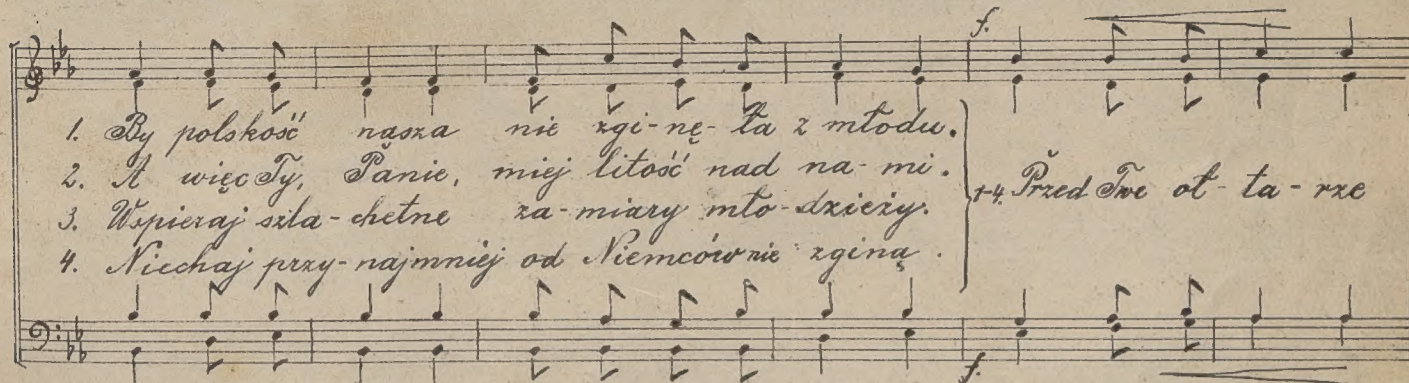 f.
1. By polskość nasza nie zgi-nę-ła z młodu.
2. A więc Ty, Panie, miej litość nad na-mi.
3. Wspieraj szla-chetne za-miary mło-dzieży.
4. Niechaj przy-najmniej od Niemców nie zginą.
1-4. Przed Twe oł-ta-rze
f.